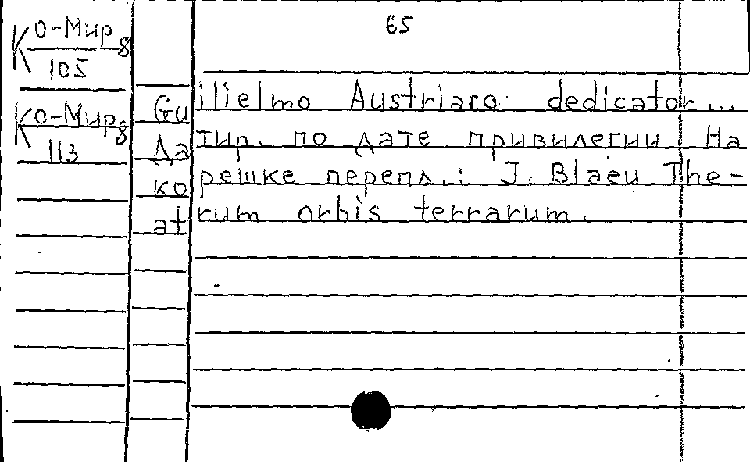 65
К О-Мир 8
105
К О-Мир 8
113
Guilielmo Austriaco dedicator...
Датир. по дате привилегии На
корешке перепл.: J. Blaeu The-
atrum orbis terrarum.